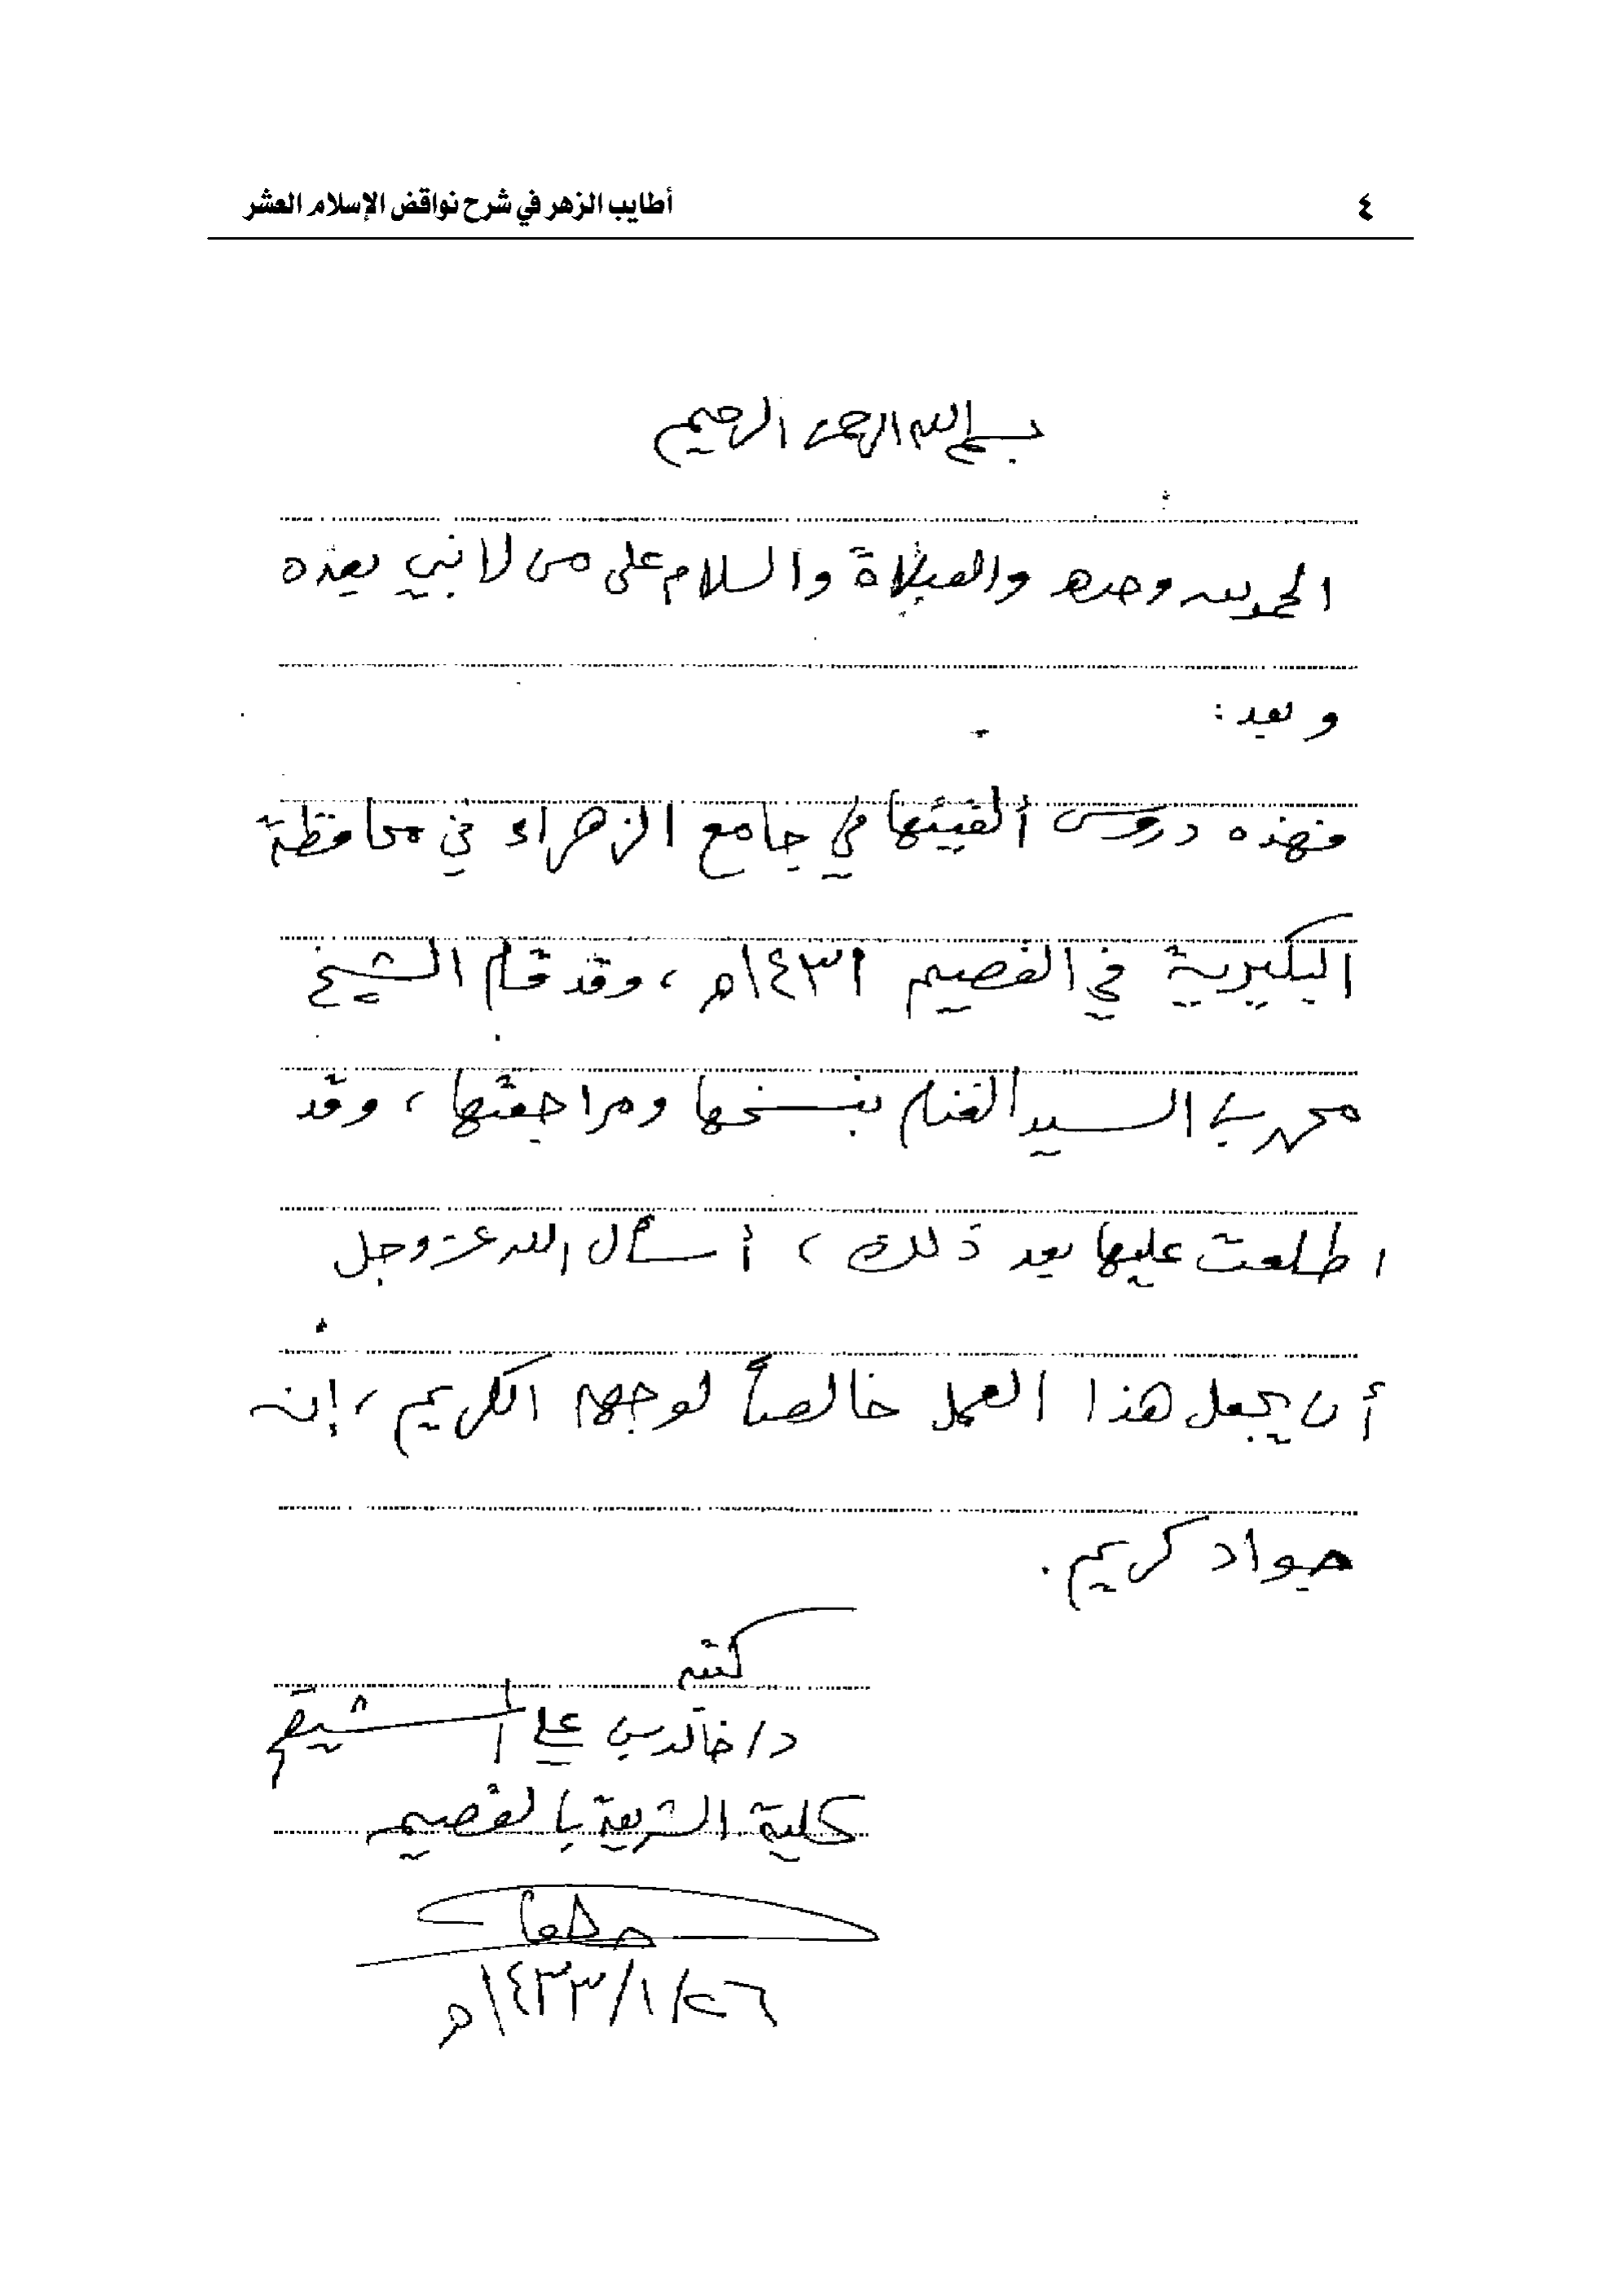 ٤ أطايب الزهر في شرح نواقض الإسلام العشر
بسم الله الرحمن الرحيم
الحمد لله وحده والصلاة والسلام على من لا نبي بعده
وبعد :
فهذه دروس ألقيتها في جامع الزهراء في محافظة
البكيرية في القصيم ١٤٣١هـ ، وقد قام الشيخ
محمد بن السيد الغنام بنسخها ومراجعتها ، وقد
اطلعت عليها بعد ذلك ، أسأل الله عز وجل
أن يجعل هذا العمل خالصاً لوجهه الكريم ، إنه
جواد كريم .
كتبه
د/ خالد بن علي المشيقح
كلية الشريعة بالقصيم
٢٦/١/١٤٣٣هـ